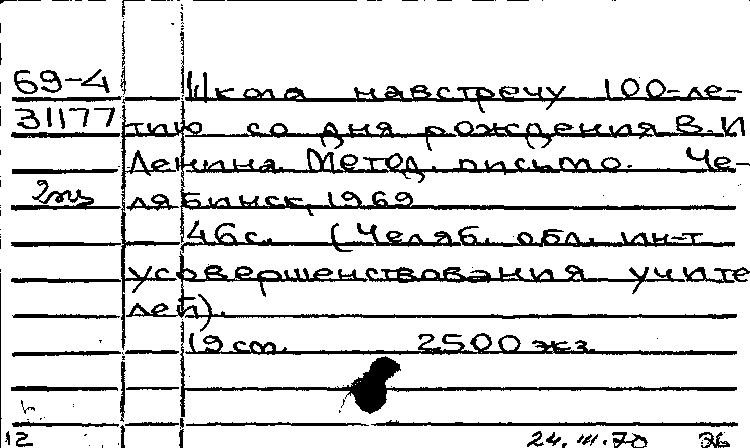 69-4
31177
2экз
Школа навстречу 100-ле-
тию со дня рождения В.И
Ленина. Метод. письмо. Че-
лябинск, 1969
46с. (Челяб. обл. ин-т
усовершенствования учите
лей).
19 см. 2500 экз.
12 24.III.70